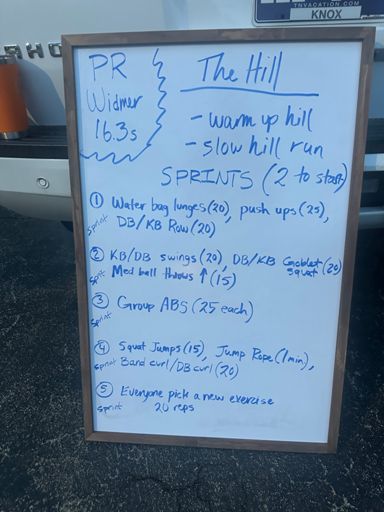 TNVACATION.COM
KNOX
PR
Widmer
16.3s
The Hill
- warm up hill
- slow hill run
SPRINTS (2 to start)
① Water bag lunges (20), push ups (25),
sprint DB/KB Row (20)
② KB/DB swings (20), DB/KB Goblet squat (20)
sprint Med ball throws ↑ (15)
③ Group ABS (25 each)
sprint
④ Squat Jumps (15), Jump Rope (1 min),
sprint Band curl/DB curl (20)
⑤ Everyone pick a new exercise
sprint 20 reps